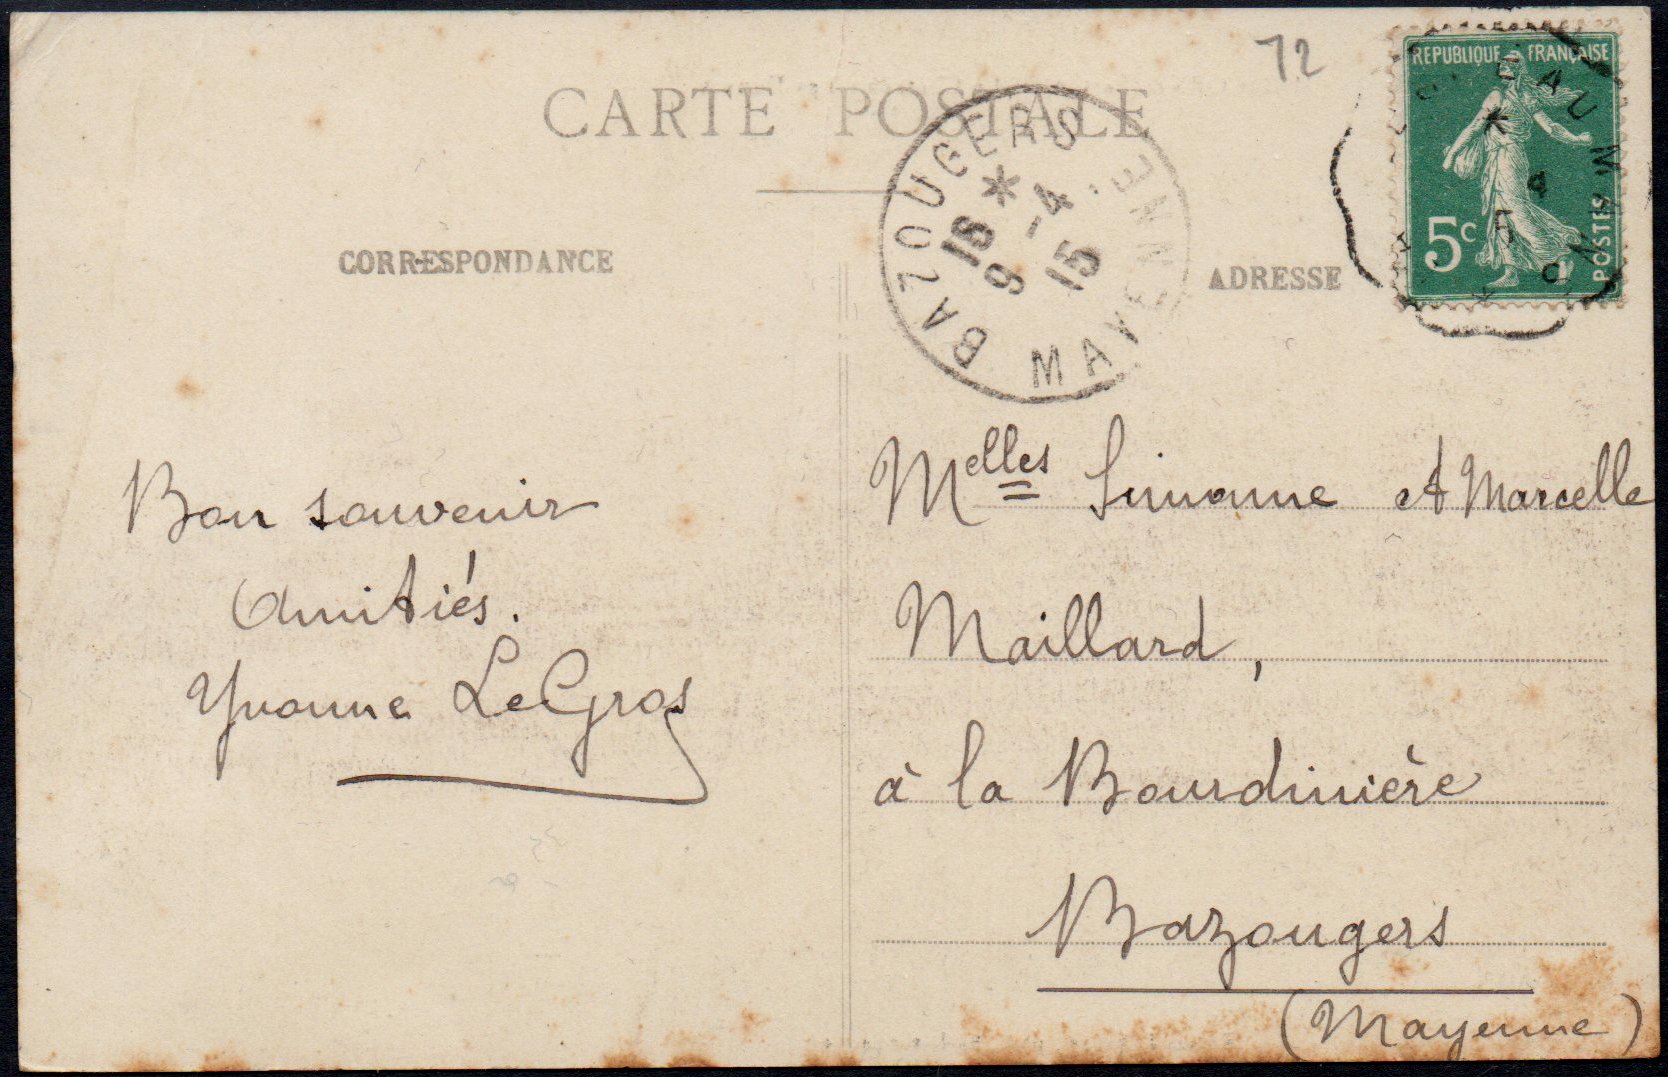 72
CARTE POSTALE
CORRESPONDANCE
ADRESSE
REPUBLIQUE FRANÇAISE
5c
POSTES
BAZOUGERS
MAYENNE
* 
9 -4
15
Bon souvenir
Amitiés.
Yvonne LeGros
Melles Simonne et Marcelle
Maillard,
à la Bourdinière
Bazougers
(Mayenne)